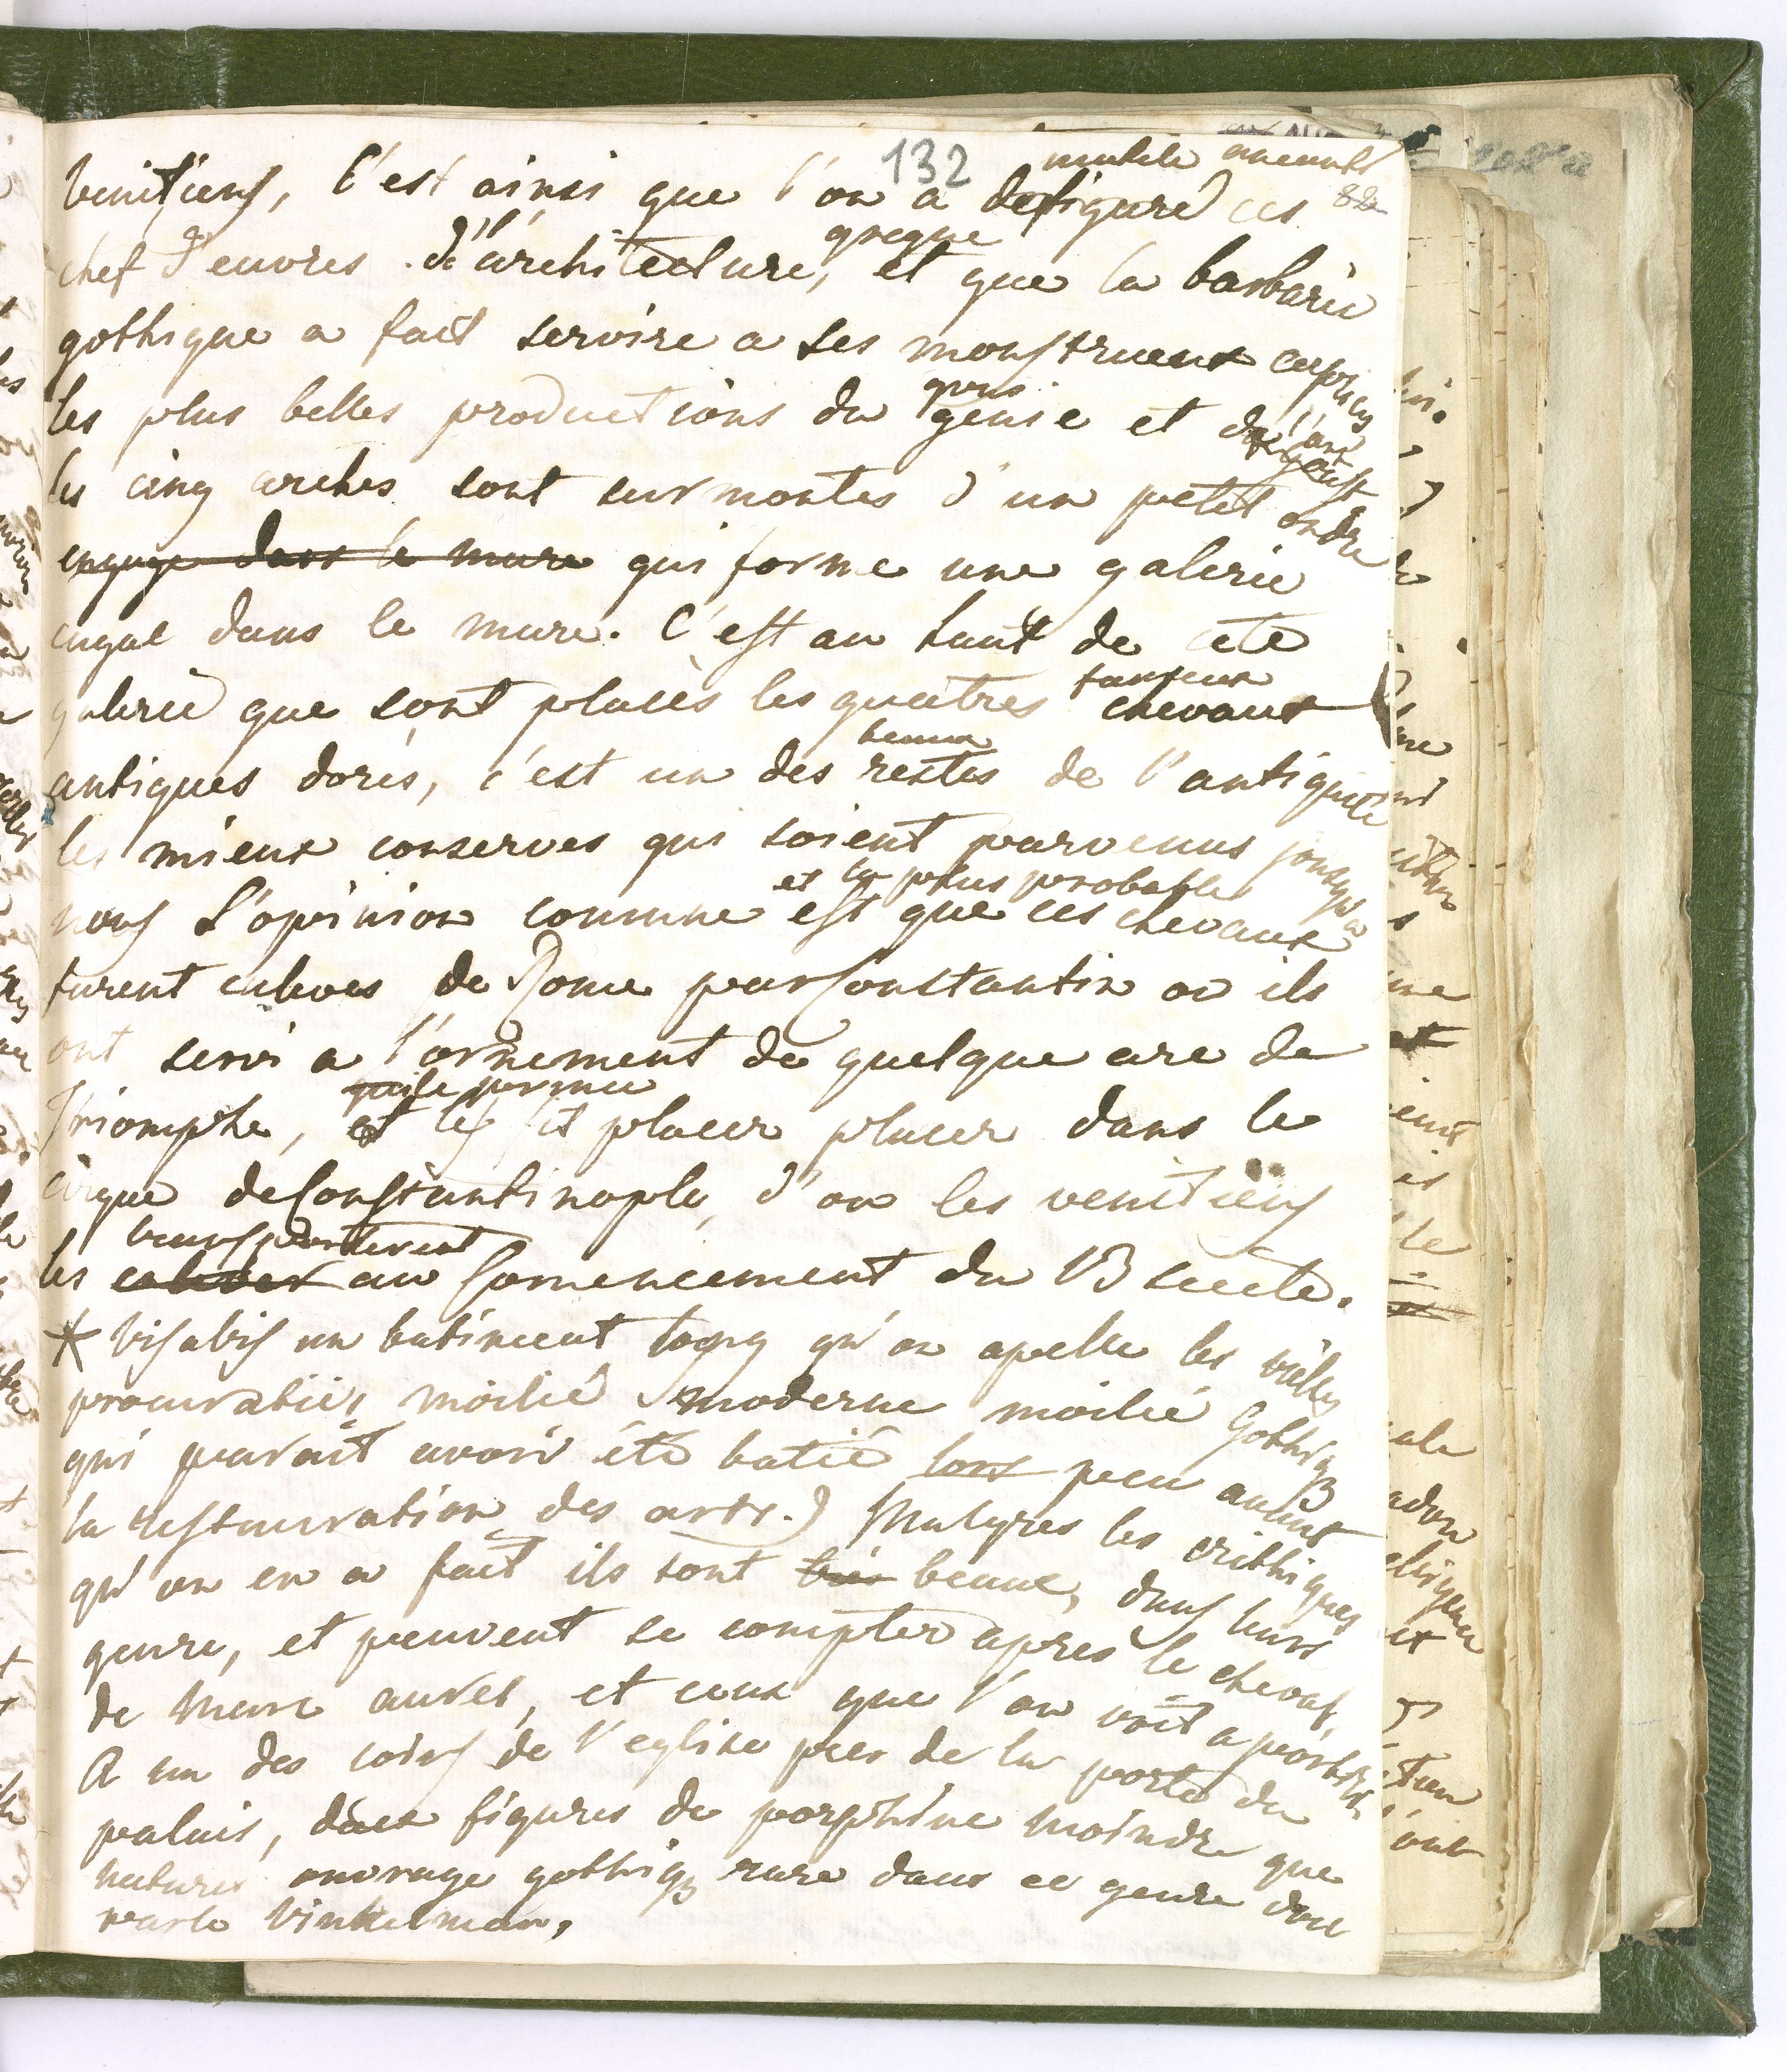 132
mutile
venitiens, C'est ainsi que l'on a defiguré ces 82
greque
chef d'euvres d'architecture, et que la barbarie
gothique a fait servire a ses monstrueux caprices
grec
les plus belles productions du genie et de l'art
goust
les cinq arches sont surmontes d'un petit ordre
engage dans le mure qui forme une galerie
dans le mure. C'est au haut de cete
fameux
galerie que sont placès les quatres chevaux
beaux
antiques dorés, c'est un des restes de l'antiquité
les mieux conserves qui soient parvenus jousqu'a
et la plus probable
nous L'opinion comune est que ces chevaux
furent enleves de Rome par Constantin ou ils
ont servi a l'ornement de quelque arc de
Triomphe, et les fit placer placer dans le
cirque de Constantinople, d'ou les venitiens
transporterent
les enlever au Comencement du 13 siecle.
* visavis un batiment long qu'on apelle les vielles
procuraties moitié moderne moitié Gothiq
qui parait avoir été batie lors peu avant
la restauration des arts.) Malgres les crithiques
qu'on en a fait ils sont très beaux, dans leurs
genre, et peuvent se compter apres le cheval
de Marc aurel, et ceux que l'on voit a portici
A un des coins de l'eglise pres de la porte du
palais, deux figures de porphire moindre que
nature ouvrage gothiq rare dans ce genre don
parle Vinkelman,